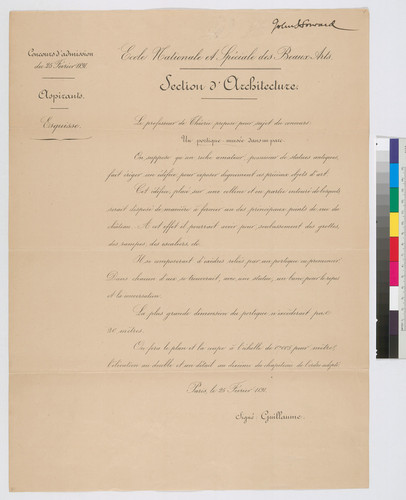 John Howard
Concours d'admission
du 25 Février 1890.
Aspirants.
Esquisse.
Ecole Nationale et Spéciale des Beaux Arts.
Section d'Architecture.
Le professeur de Théorie propose pour sujet de concours:
Un portique-musée dans un parc.
On suppose qu'un riche amateur, possesseur de statues antiques,
fait ériger un édifice pour exposer dignement ces précieux objets d'art.
Cet édifice, placé sur une colline et en partie entouré de bosquets
serait disposé de manière à former un des principaux points de vue du
château. A cet effet il pourrait avoir pour soubassement des grottes,
des rampes, des escaliers, &c.
Il se composerait d'arcades reliées par un portique en
Devant chacun d'eux, se trouverait, avec une statue, un banc pour le repos
et la conversation.
La plus grande dimension du portique n'excéderait pas
20 mètres.
On fera le plan et la coupe à l'échelle de 0m005 pour mètre,
l'élévation au double et un détail au de l'ordre adopté.
Paris, le 25 Février 1890
Signé: Guillaume.